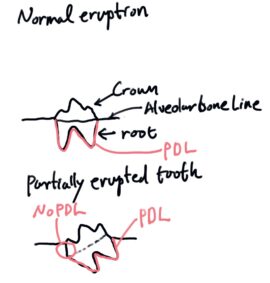 Normal eruption
Crown
Alveolar bone Line
root
PDL
Partially erupted tooth
No PDL
PDL